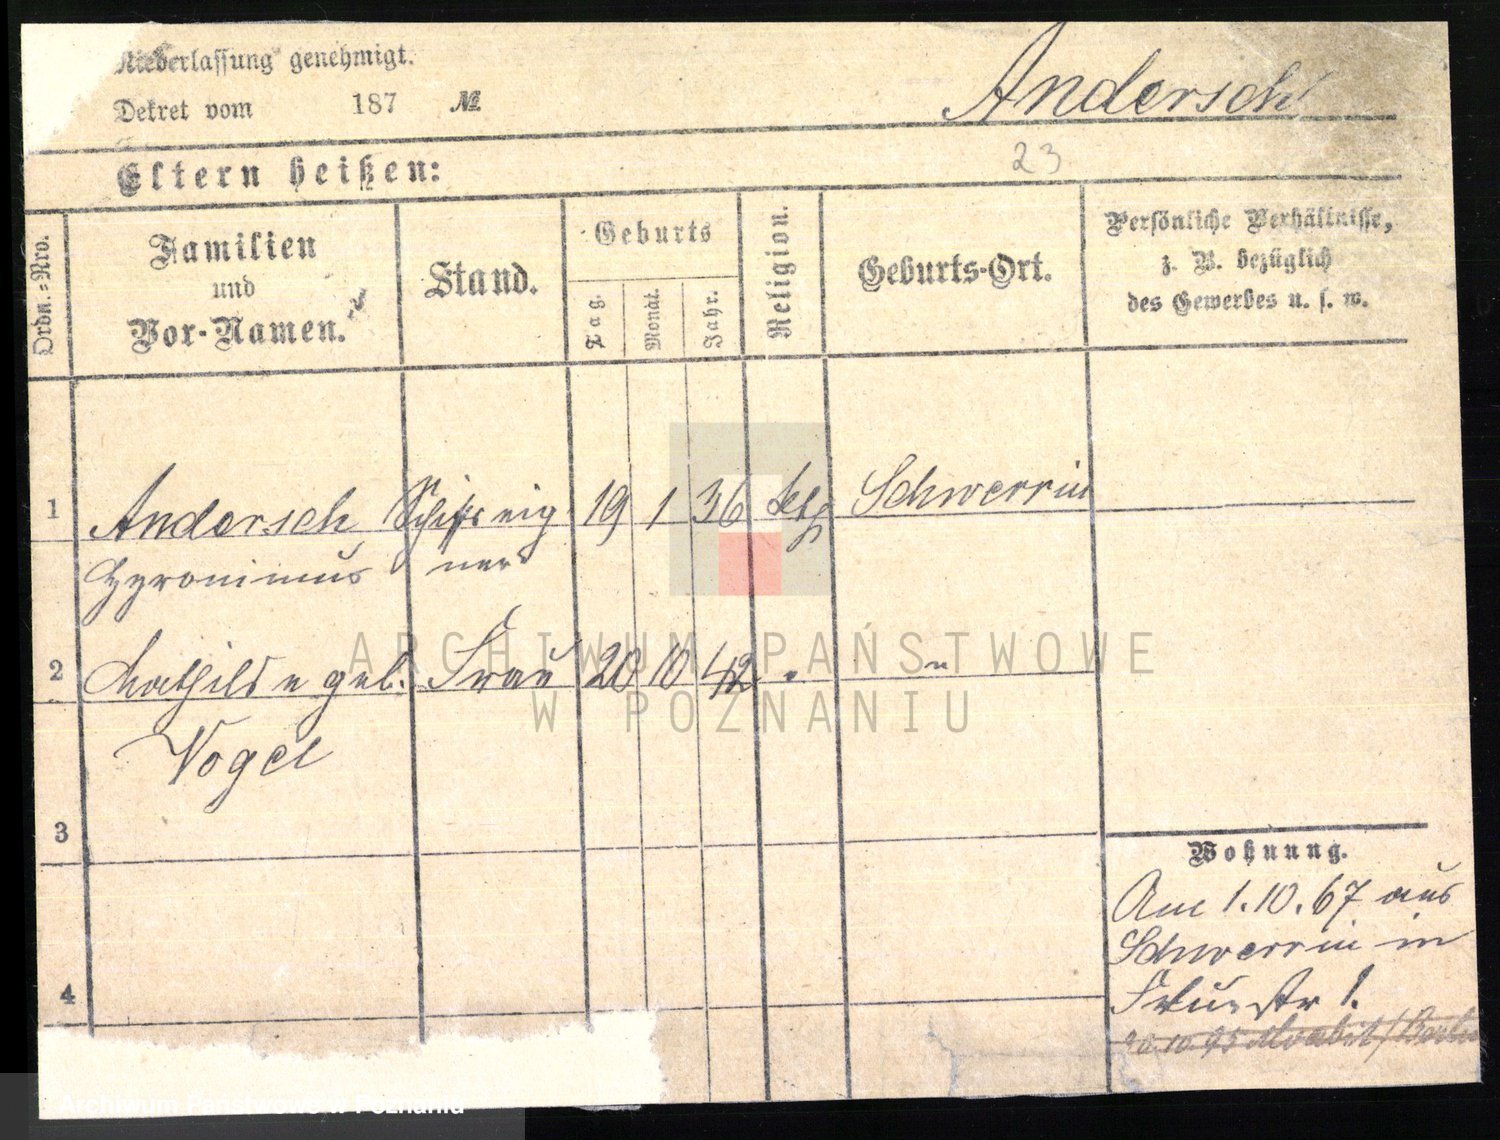 Niederlassung genehmigt.
Dekret vom 187 №
Andersch
Eltern heißen:
23
Ordn.=Nro.
Familien
und
Vor-Namen.
Stand.
Geburts
Tag.
Monat.
Jahr.
Religion.
Geburts-Ort.
Persönliche Verhältnisse,
z. B. bezüglich
des Gewerbes u. s. w.
1 Andersch Schiffseig 19 1 36 kth Schwerrin
Hyronimus ner
2 Mathilde geb. Frau 20 10 42 " "
Vogel
3
4
Wohnung.
Am 1.10.67 aus
Schwerrin in
str 1.
20.10.95 Moabit / Berlin
ARCHIWUM PAŃSTWOWE
W POZNANIU
Archiwum Państwowe w Poznaniu